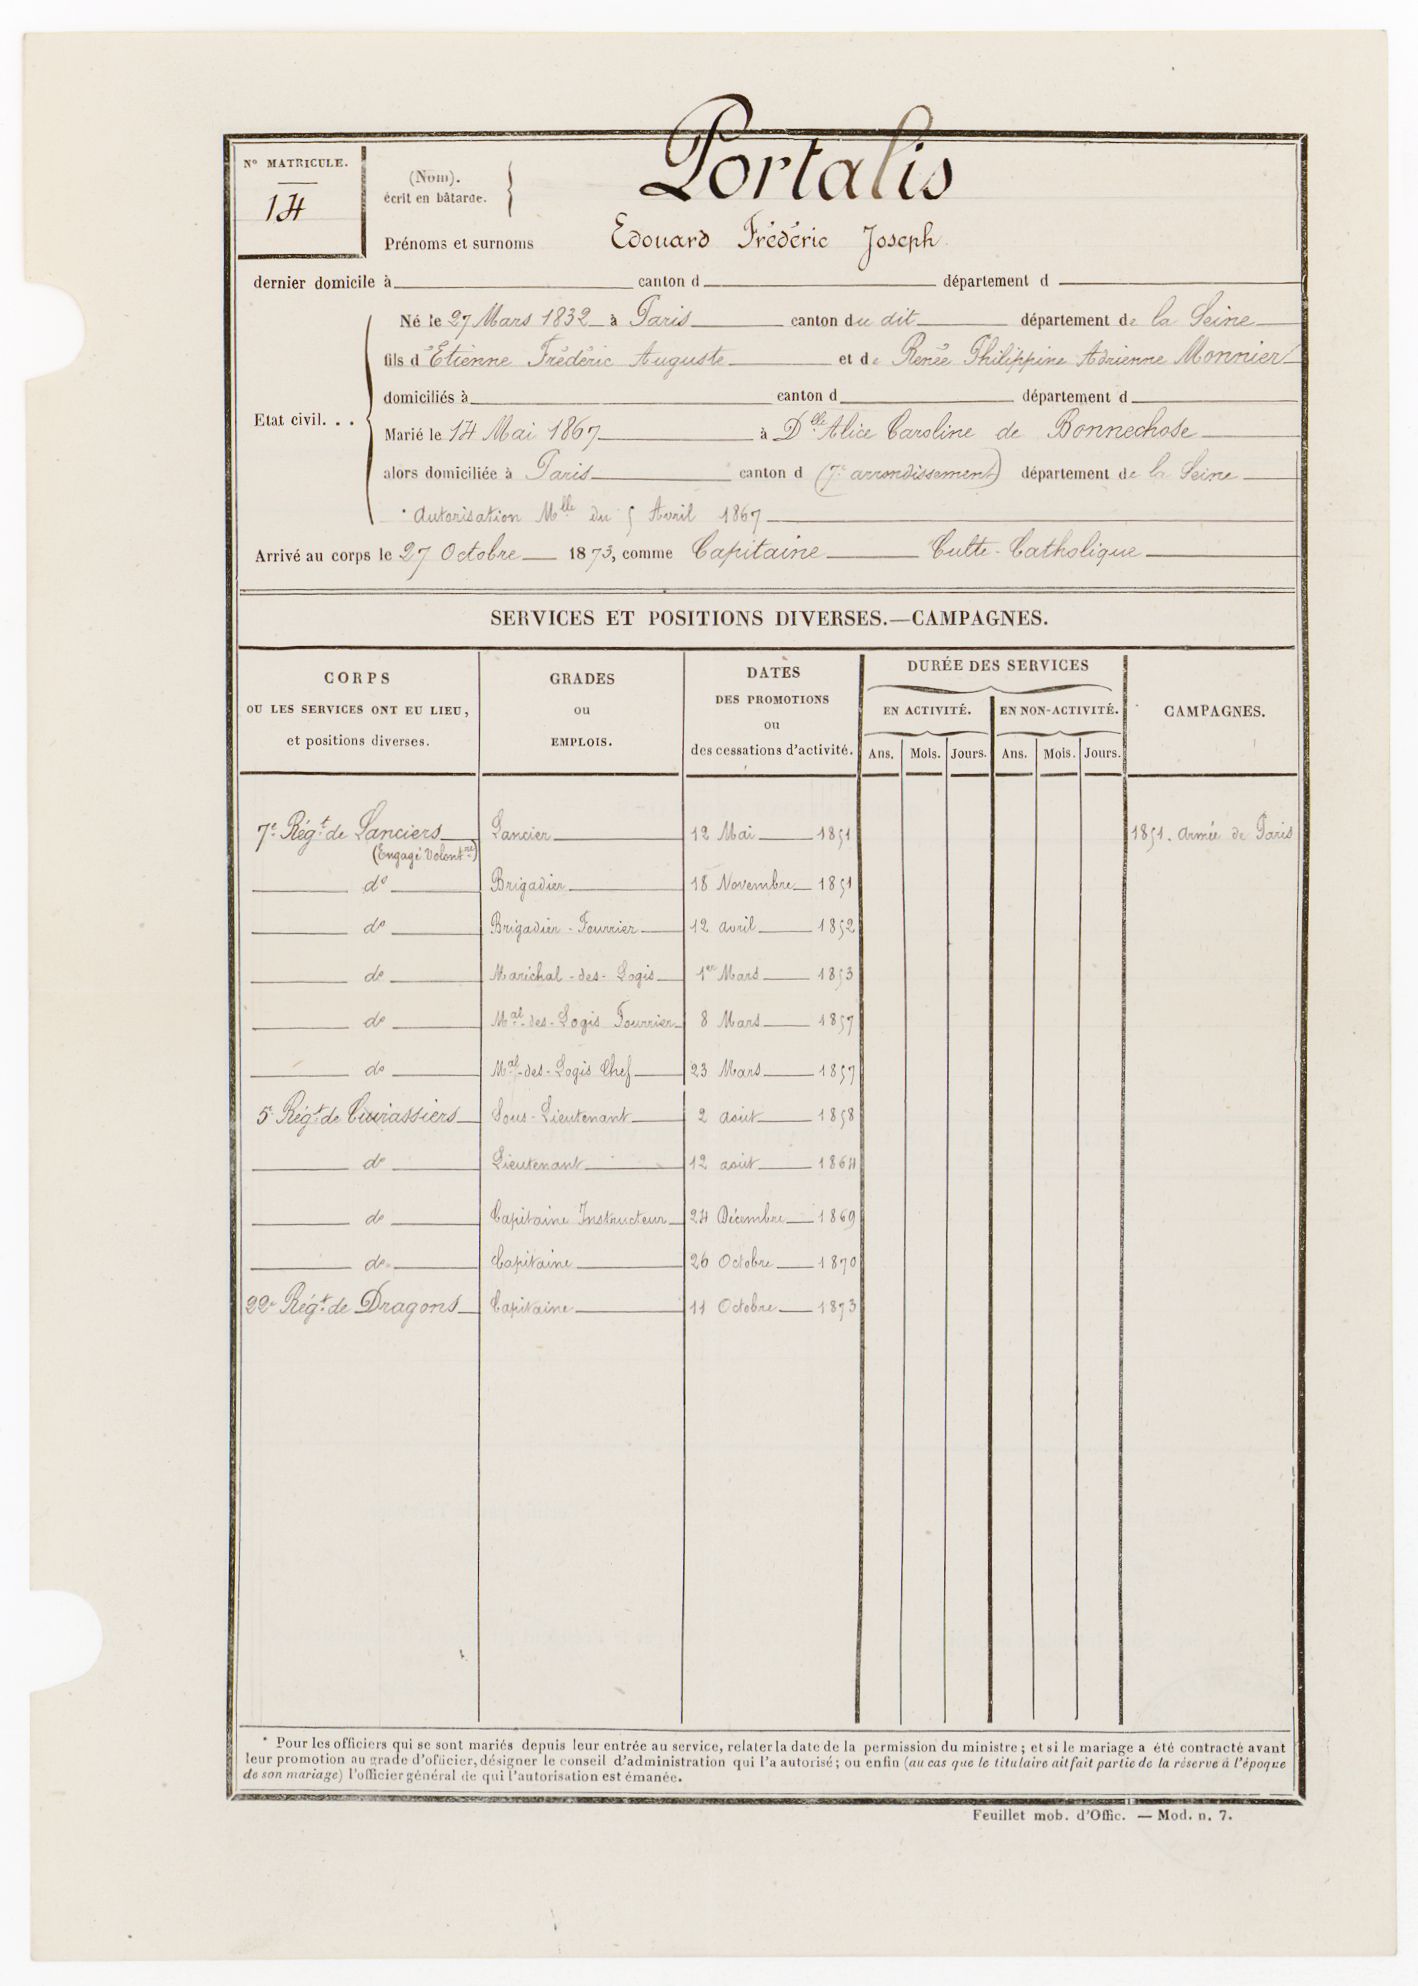 N° MATRICULE.
14
(Nom).
écrit en bâtarde.
Portalis
Prénoms et surnoms Edouard Frédéric Joseph
dernier domicile à canton d département d
Etat civil. . .
Né le 27 Mars 1832 à Paris canton du dit département de la Seine
fils d'Etienne Frédéric Auguste et de Renée Philippine Adrienne Monnier
domiciliés à canton d département d
Marié le 14 Mai 1867 à Dlle Alice Caroline de Bonnechose
alors domiciliée à Paris canton d (7e arrondissement) département de la Seine
* autorisation Mlle du 5 Avril 1867
Arrivé au corps le 27 Octobre 1873, comme Capitaine Culte Catholique
SERVICES ET POSITIONS DIVERSES.—CAMPAGNES.
CORPS
OU LES SERVICES ONT EU LIEU,
et positions diverses.
GRADES
ou
EMPLOIS.
DATES
DES PROMOTIONS
ou
des cessations d'activité.
DURÉE DES SERVICES
EN ACTIVITÉ. EN NON-ACTIVITÉ.
Ans. Mois. Jours. Ans. Mois. Jours.
CAMPAGNES.
7e Régt de Lanciers Lancier 12 Mai 1851 1851. armée de Paris
(Engagé Volontre)
do Brigadier 18 Novembre 1851
do Brigadier-Fourrier 12 avril 1852
do Maréchal-des-Logis 1er Mars 1853
do Mal-des-Logis Fourrier 8 Mars 1857
do Mal-des-Logis Chef 23 Mars 1857
5e Régt de Cuirassiers Sous-Lieutenant 2 août 1858
do Lieutenant 12 août 1864
do Capitaine Instructeur 24 Décembre 1869
do Capitaine 26 Octobre 1870
22e Régt de Dragons Capitaine 11 Octobre 1873
* Pour les officiers qui se sont mariés depuis leur entrée au service, relater la date de la permission du ministre ; et si le mariage a été contracté avant
leur promotion au grade d'officier, désigner le conseil d'administration qui l'a autorisé ; ou enfin (au cas que le titulaire ait fait partie de la réserve à l'époque
de son mariage) l'officier général de qui l'autorisation est émanée.
Feuillet mob. d'Offic. — Mod. n. 7.